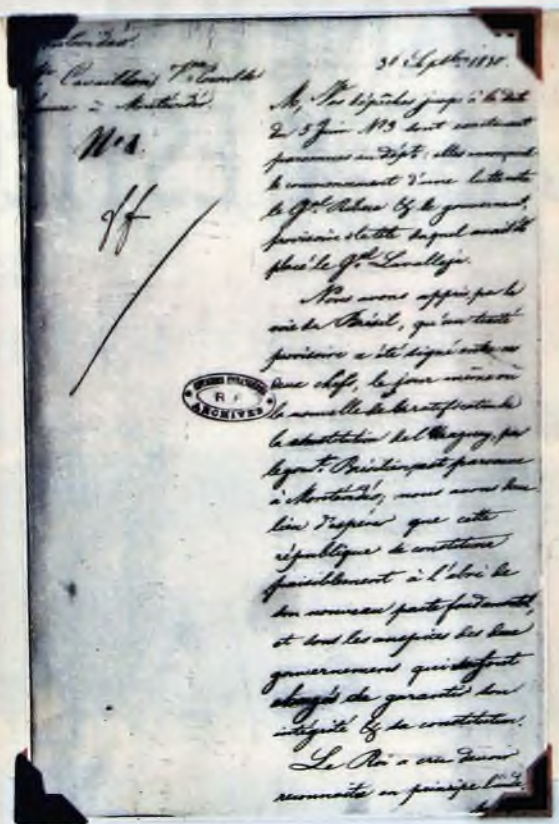 Montevideo.
Mr Cavaillon, Consul de
France à Montevideo.
Nº 1.
AFFAIRES ETRANGERES
R F
ARCHIVES
30 Septbre 1830.
M, Vos dépêches jusqu'à la date
du 5 Juin Nº 9 sont
parvenues au Dépt: elles
le commencement d'une lutte entre
le Gal. Ribera & le gouvernemt.
provisoire à la tête duquel avait été
placé le Gal. Lavalleja.
Nous avons appris, par la
voie du Brésil, qu'un traité
provisoire a été signé entre ces
deux chefs, le jour même où
la nouvelle de la ratification de
la constitution de l'Uruguay, par
le gouvt. Brésilien, est parvenue
à Montevideo; nous avons donc
lieu d'espérer que cette
république se constituera
paisiblement à l'abri de
son nouveau pacte fondamental,
et sous les auspices des deux
gouvernemens qui se sont
chargés de garantir son
intégrité & sa constitution.
Le Roi a cru devoir
reconnaître en principe